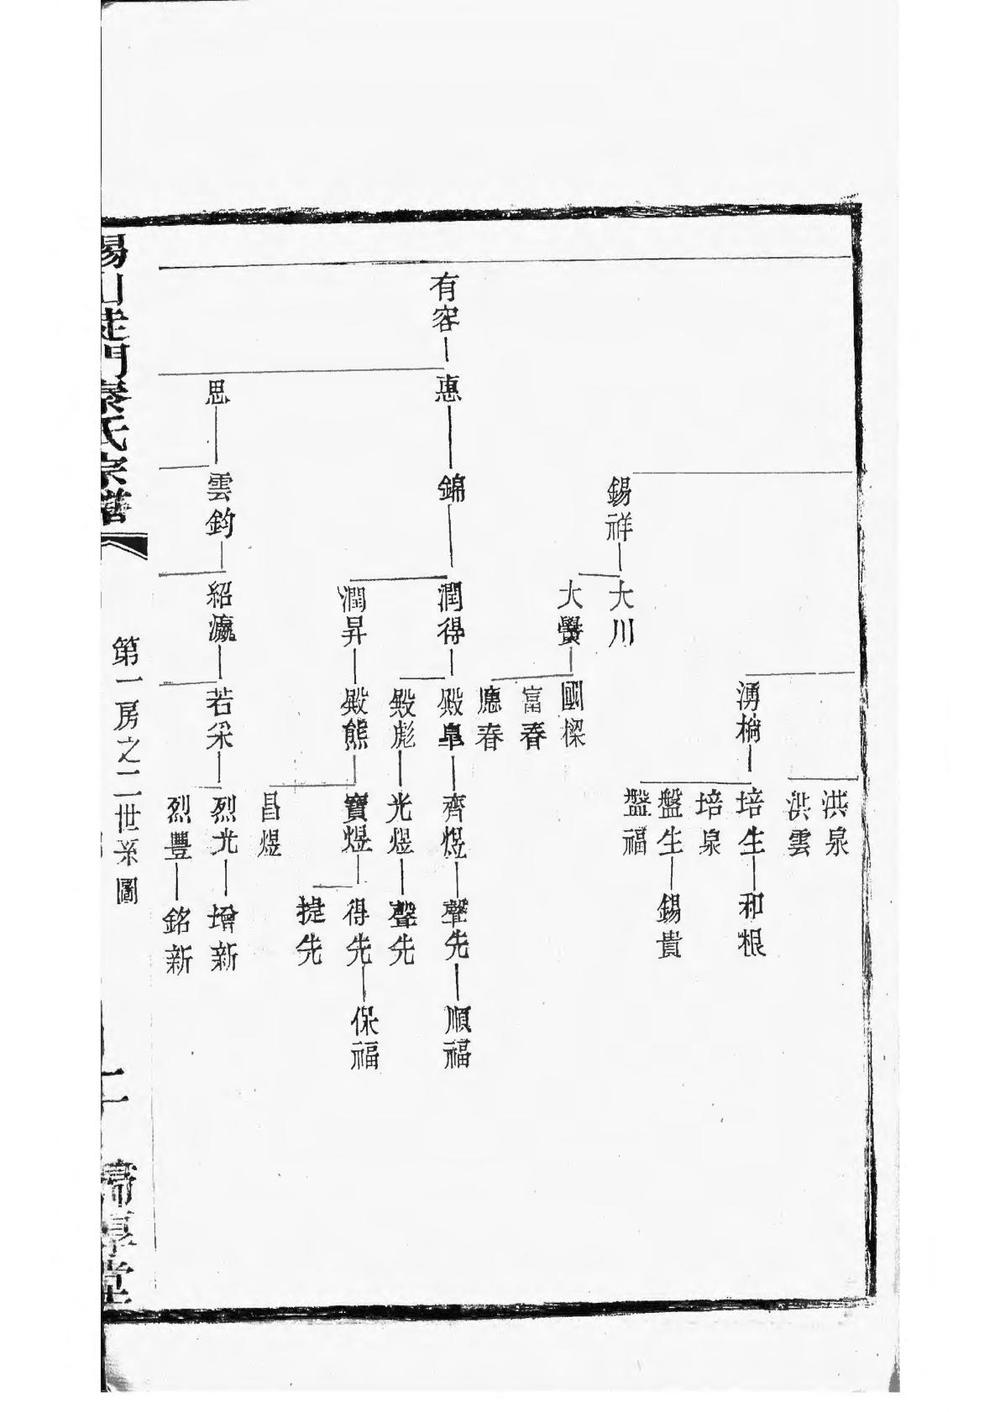 洪泉
洪雲
湧楠
培生
和根
培泉
盤生
錫貴
盤福
錫祥
大川
大𤾗
國樑
富春
應春
有容
惠
錦
潤得
殿皐
齊煜
聲先
順福
殿彪
光煜
聲先
潤昇
殿熊
寶煜
得先
保福
捷先
昌煜
思
雲鈞
紹瀛
若采
烈光
增新
烈豐
銘新
錫山陡門秦氏宗譜
第一房之二世系圖
歸厚堂